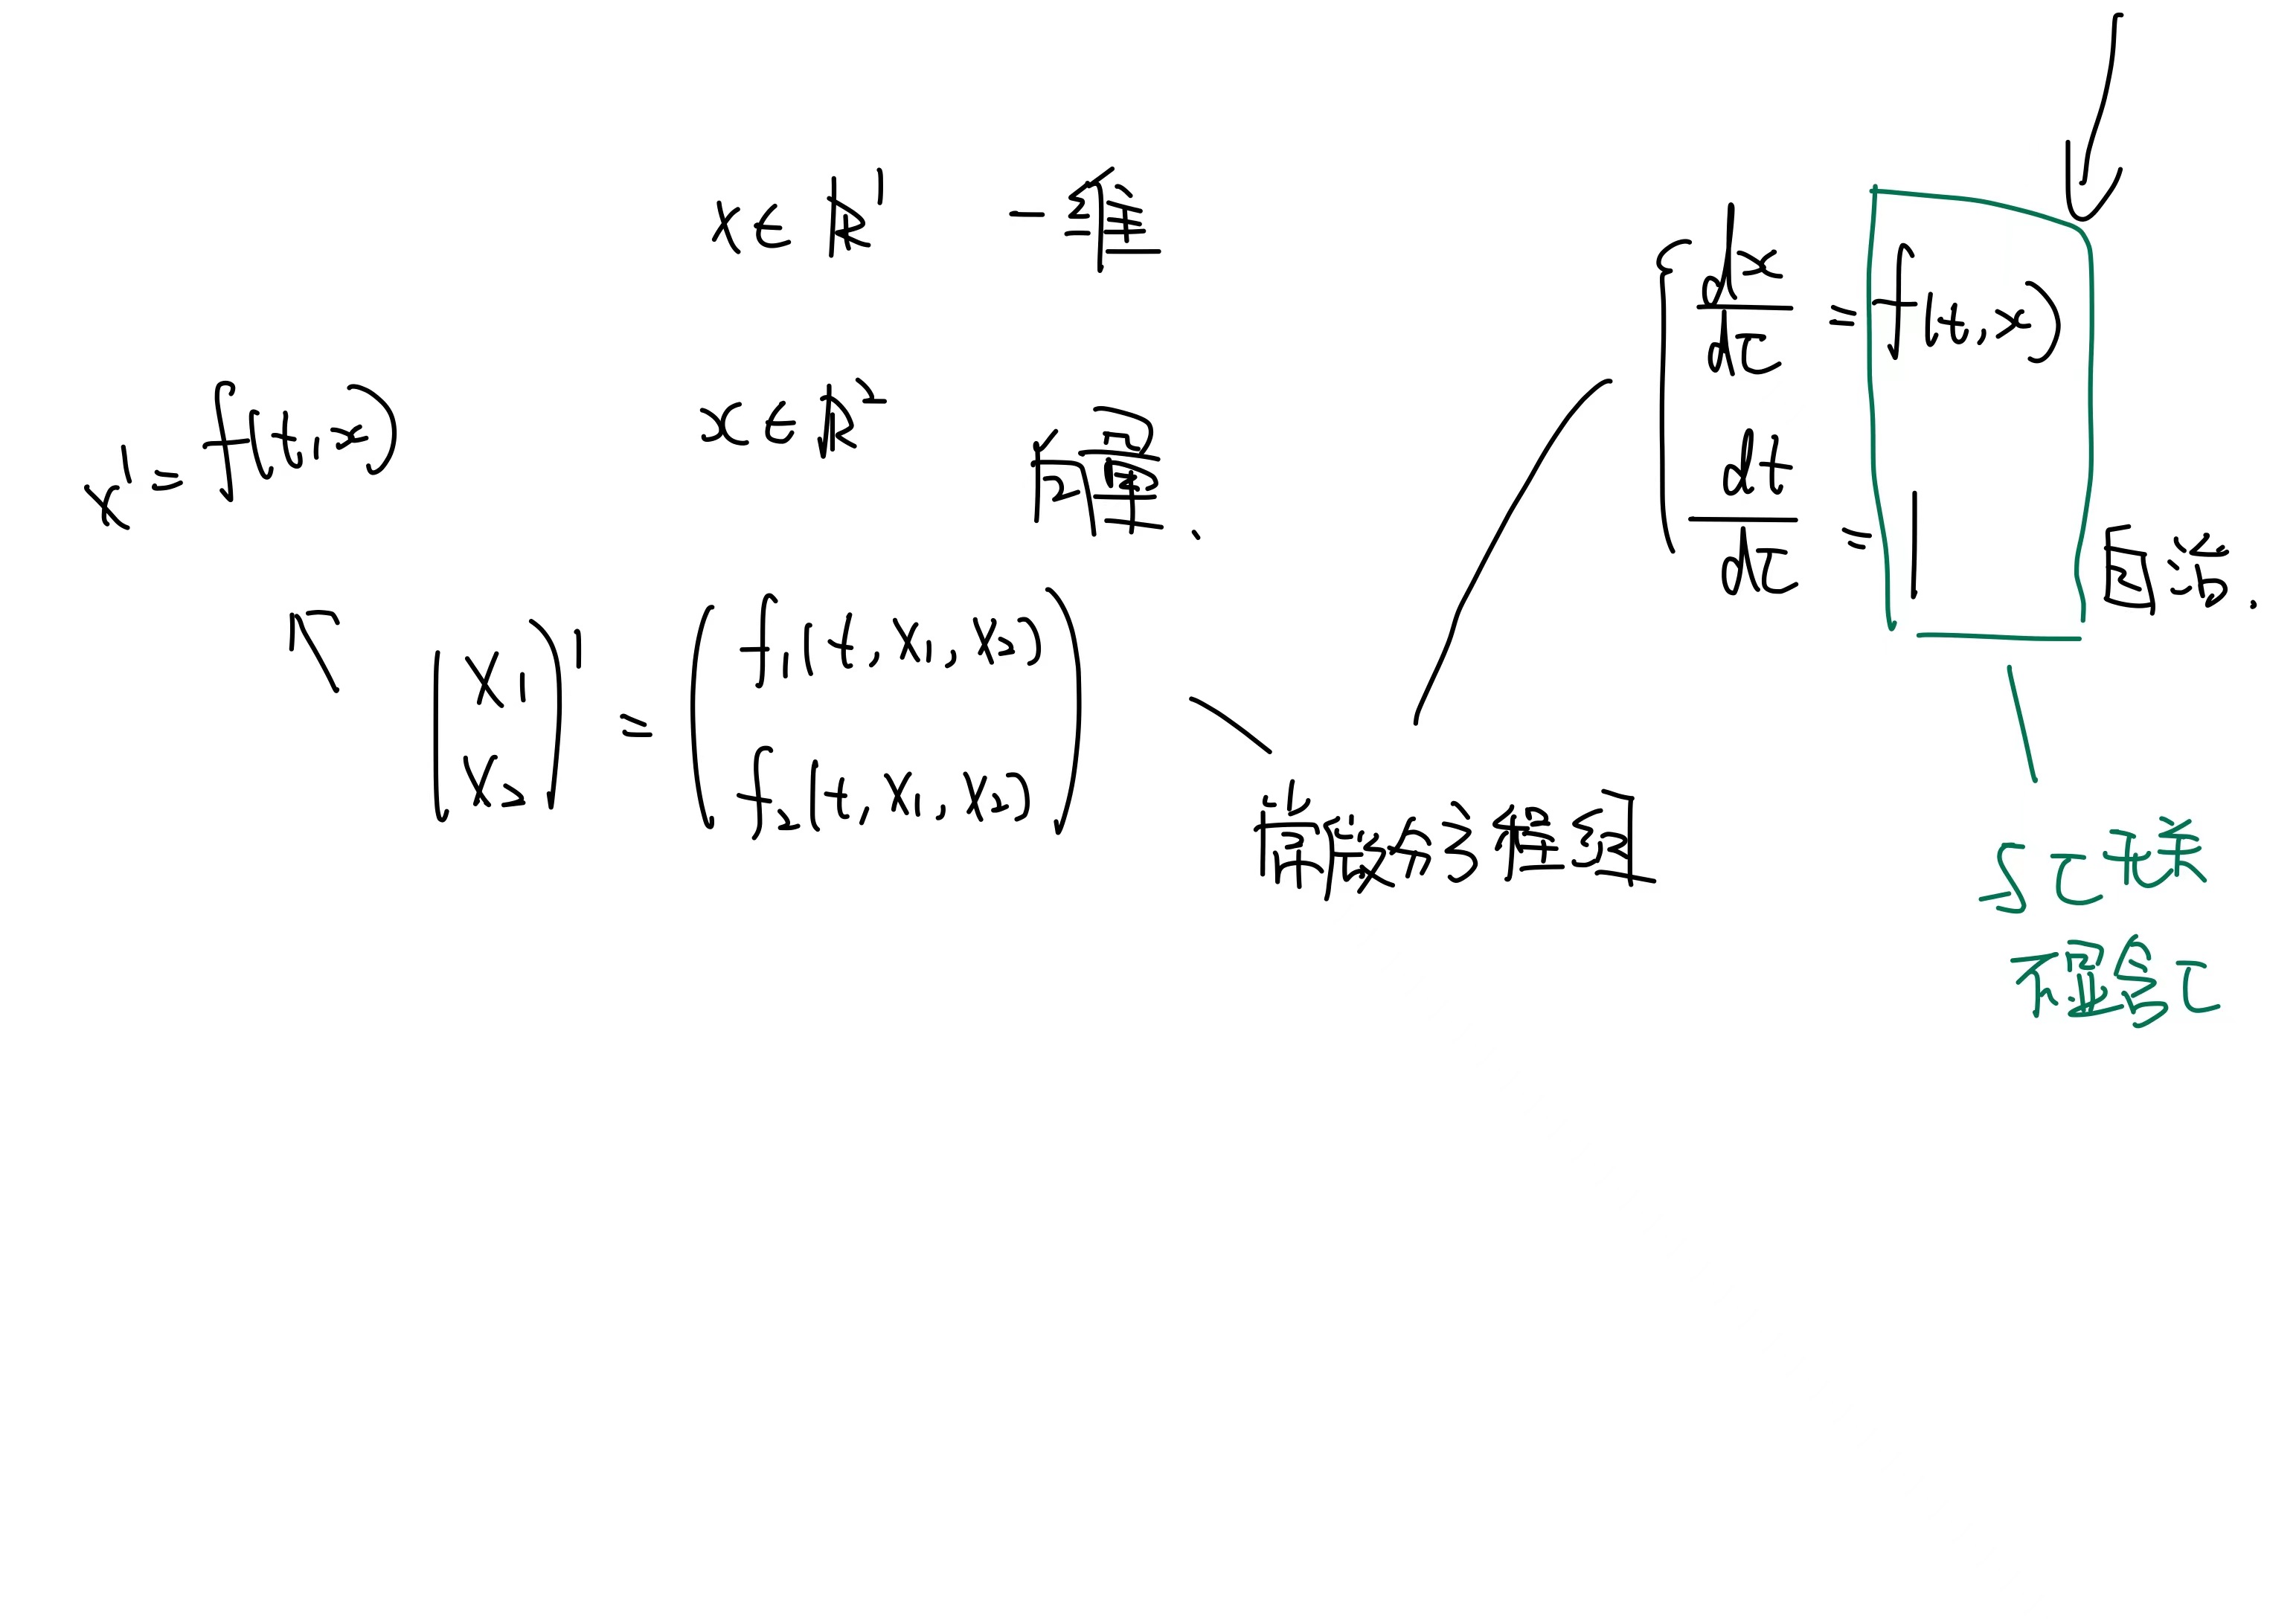 x ∈ ℝ¹ 一维
x' = f(t, x)
x ∈ ℝ²
(x₁ x₂)' = (f₁(t, x₁, x₂) f₂(t, x₁, x₂))
dx/dτ = f(t, x)
dt/dτ = 1
自治.
与τ无关
不显含τ